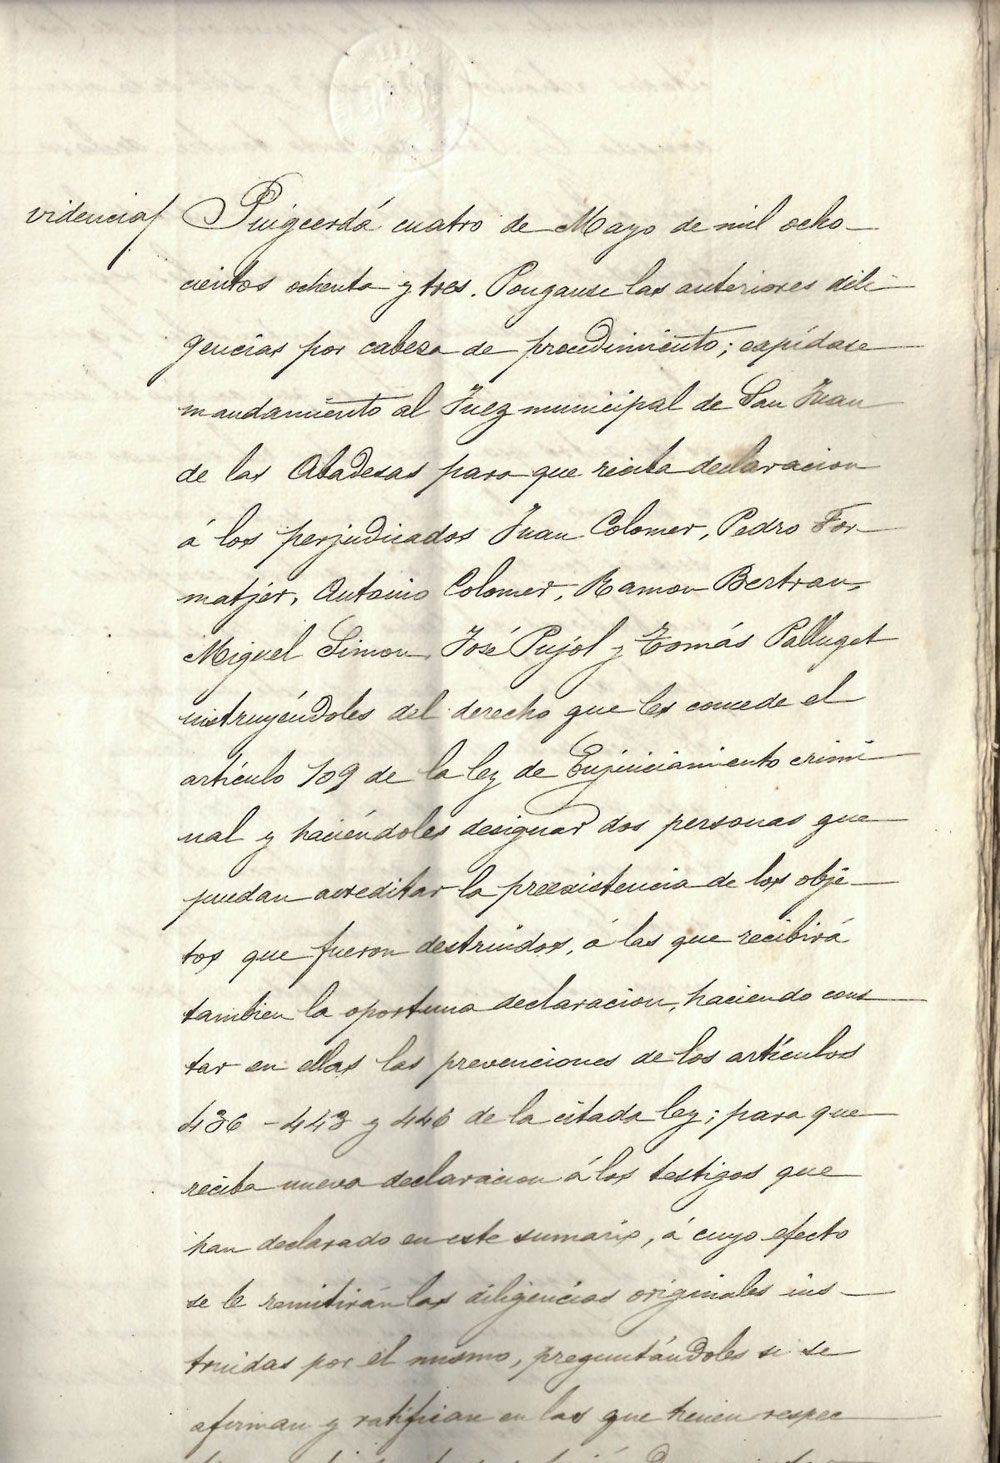 videncia/
Puigcerdá cuatro de Mayo de mil ocho
cientos ochenta y tres. Pongause las anteriores dili
gencias por cabeza de procedimiento; expídase
mandamiento al Juez municipal de San Juan
de las Abadesas para que reciba declaracion
á los perjudicados Juan Colomer, Pedro For
matjer, Antonio Colomer, Ramon Bertran,
Miguel Simon, José Pujol y Tomás Palluget
instruyéndoles del derecho que les concede el
artículo 109 de la ley de Enjuiciamiento crimi
nal y haciéndoles designar dos personas que
puedan acreditar la preexistencia de los obje
tos que fueron destruidos, á las que recibirá
tambien la oportuna declaracion, haciendo cons
tar en ellas las prevenciones de los artículos
436 - 443 y 446 de la citada ley; para que
reciba nueva declaracion á los testigos que
han declarado en este sumario, á cuyo efecto
se le remitirán las diligencias originales ins
truidas por el mismo, preguntándoles si se
afirman y ratifican en las que tienen respec